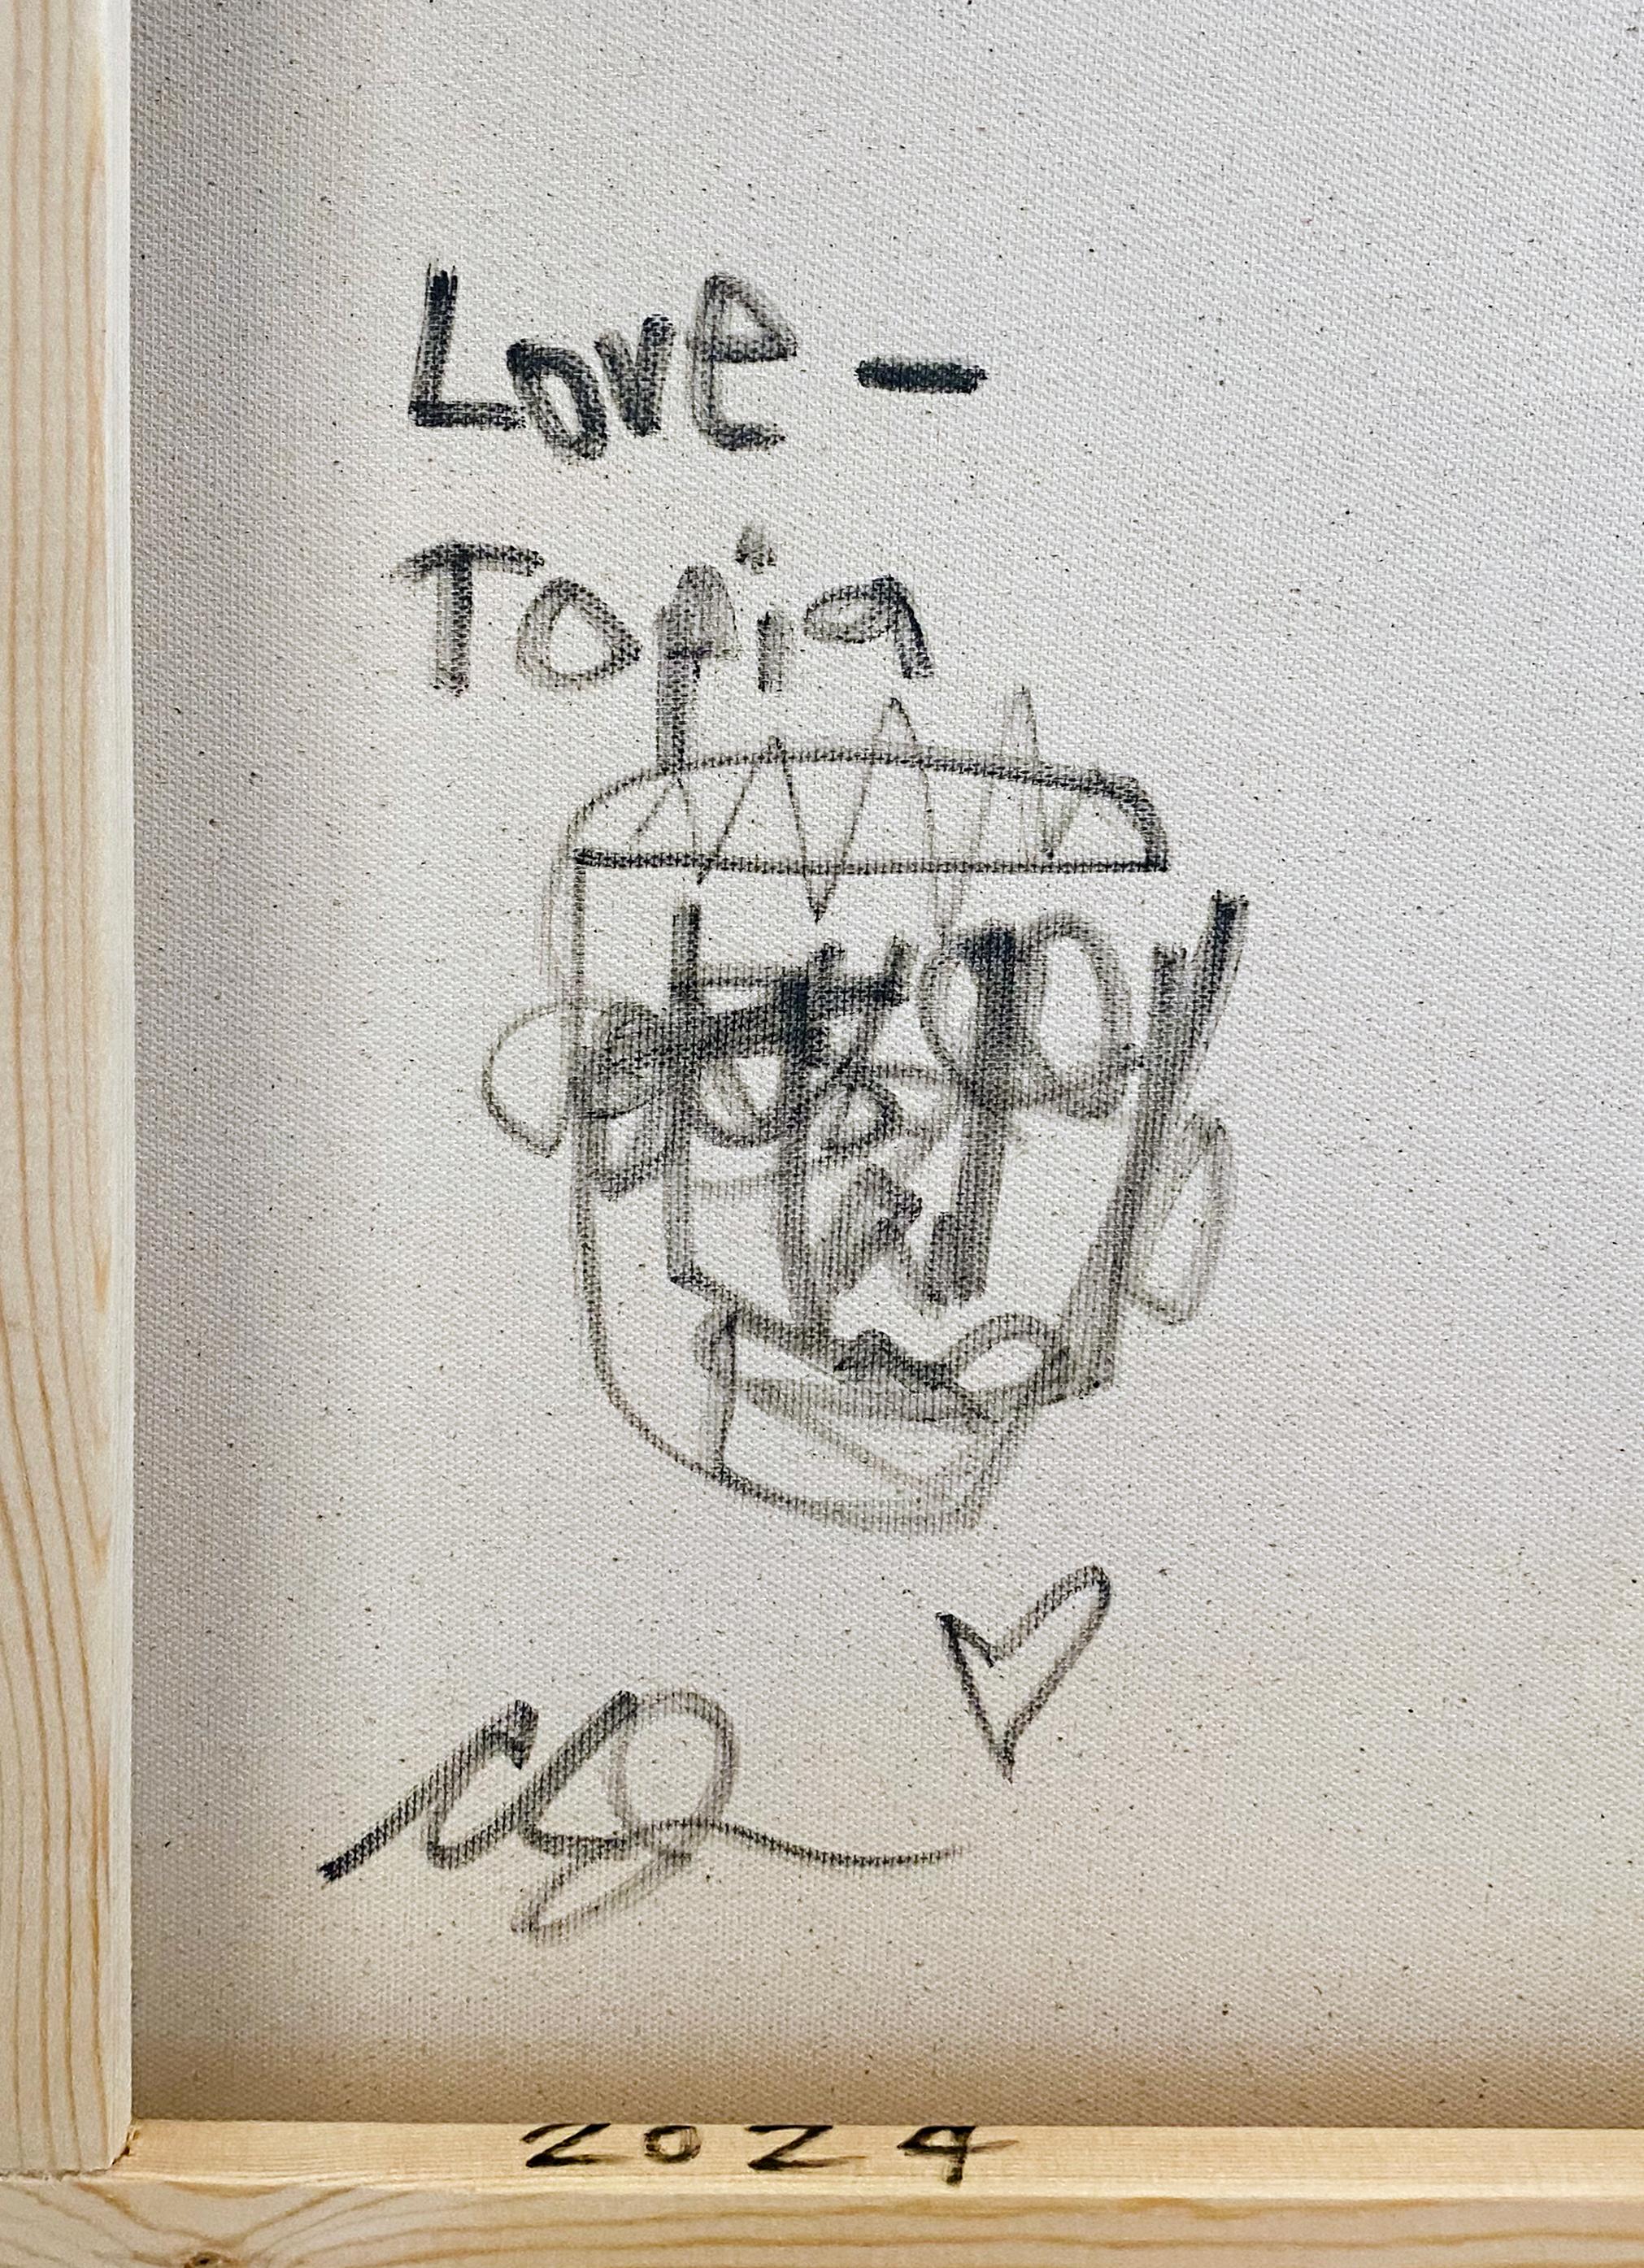 Love –
Topia
2024